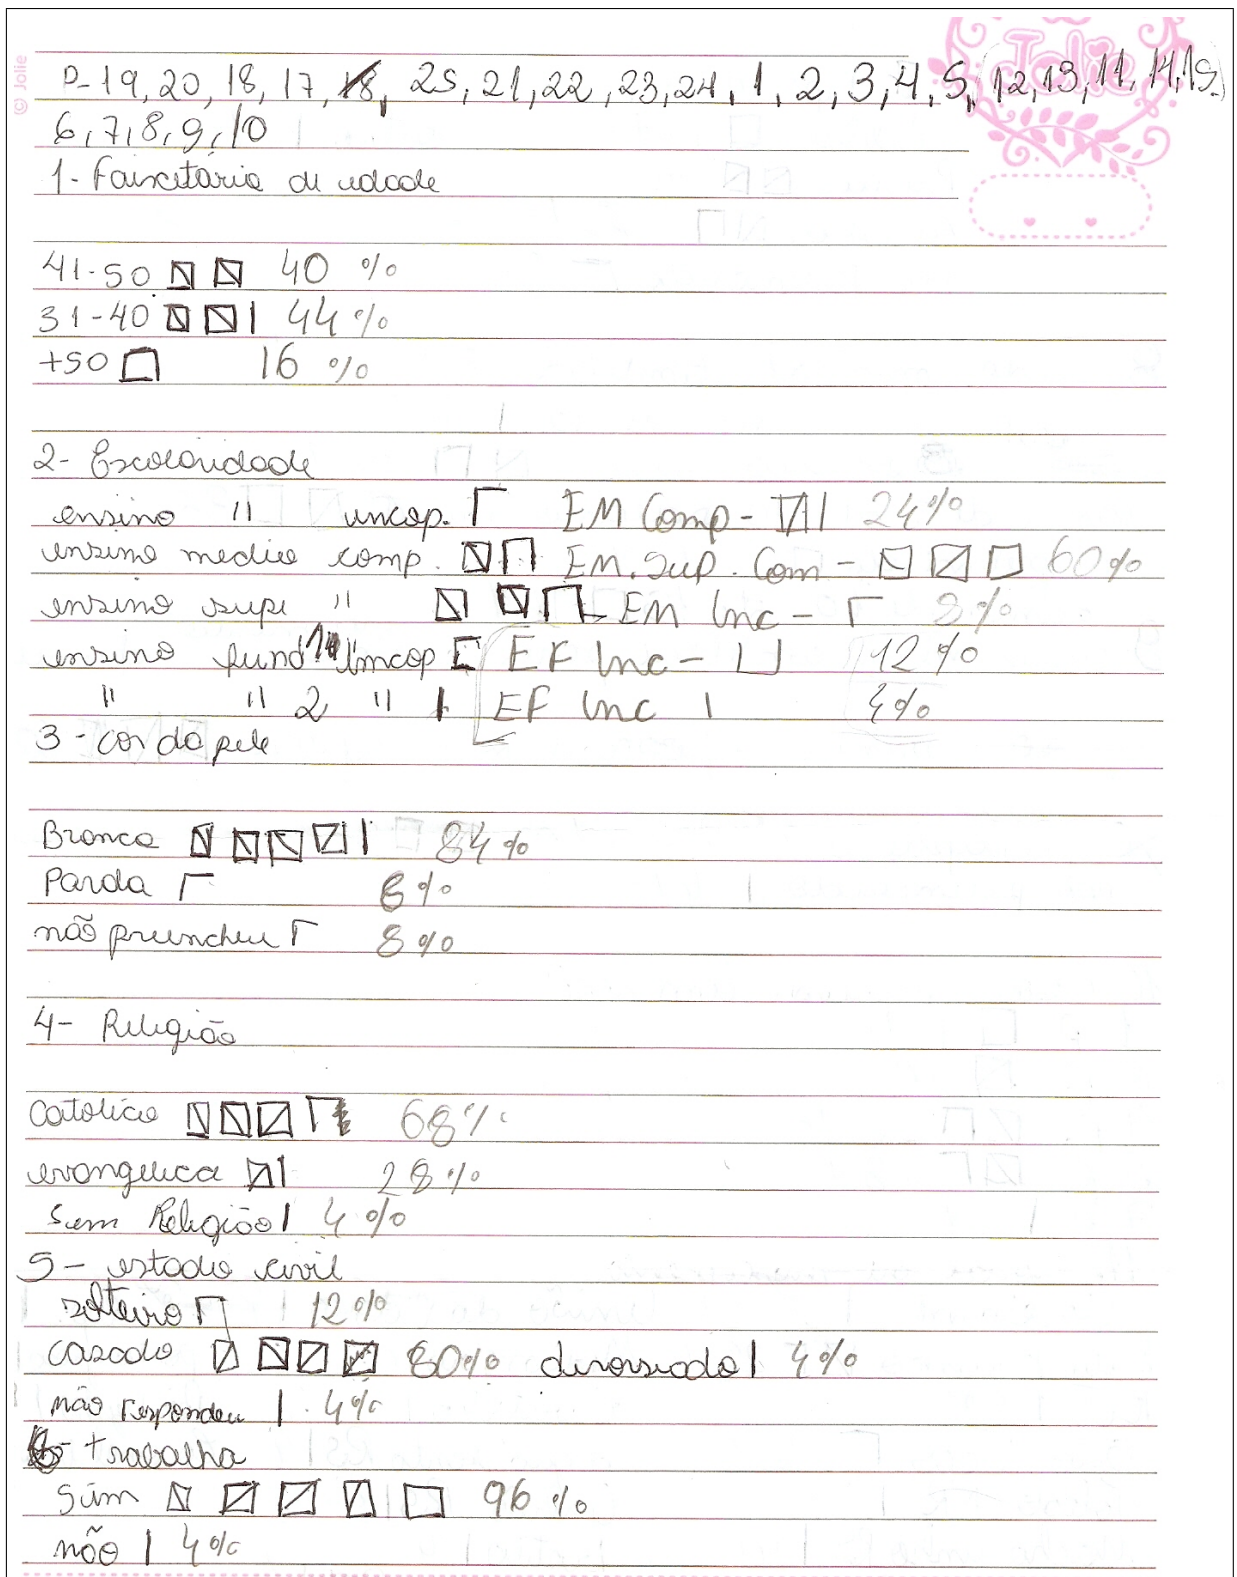 © Jolie
Jolie
P-19, 20, 18, 17, 18, 25, 21, 22, 23, 24, 1, 2, 3, 4, 5, (12, 13, 11, 14, 15)
6, 7, 8, 9, 10
1- Faixetária de idade
41-50 40 %
31-40 44 %
+50 16 %
2- Escolaridade
ensino " incop. EM Comp - 24%
ensino medio comp. EM. Sup. Com - 60%
ensino supe " EM Inc - 8%
ensino fund 1 imcop EF Inc - 12%
" " 2 " EF Inc 4%
3 - cor da pele
Branca 84 %
Parda 8%
não preencheu 8%
4- Religião
Catolica 68%
evangelica 28%
Sem Religião 4%
5 - estado civil
solteiro 12%
casado 80% divorsiado 4%
não respondeu 4%
6- trabalha
Sim 96 %
não 4%